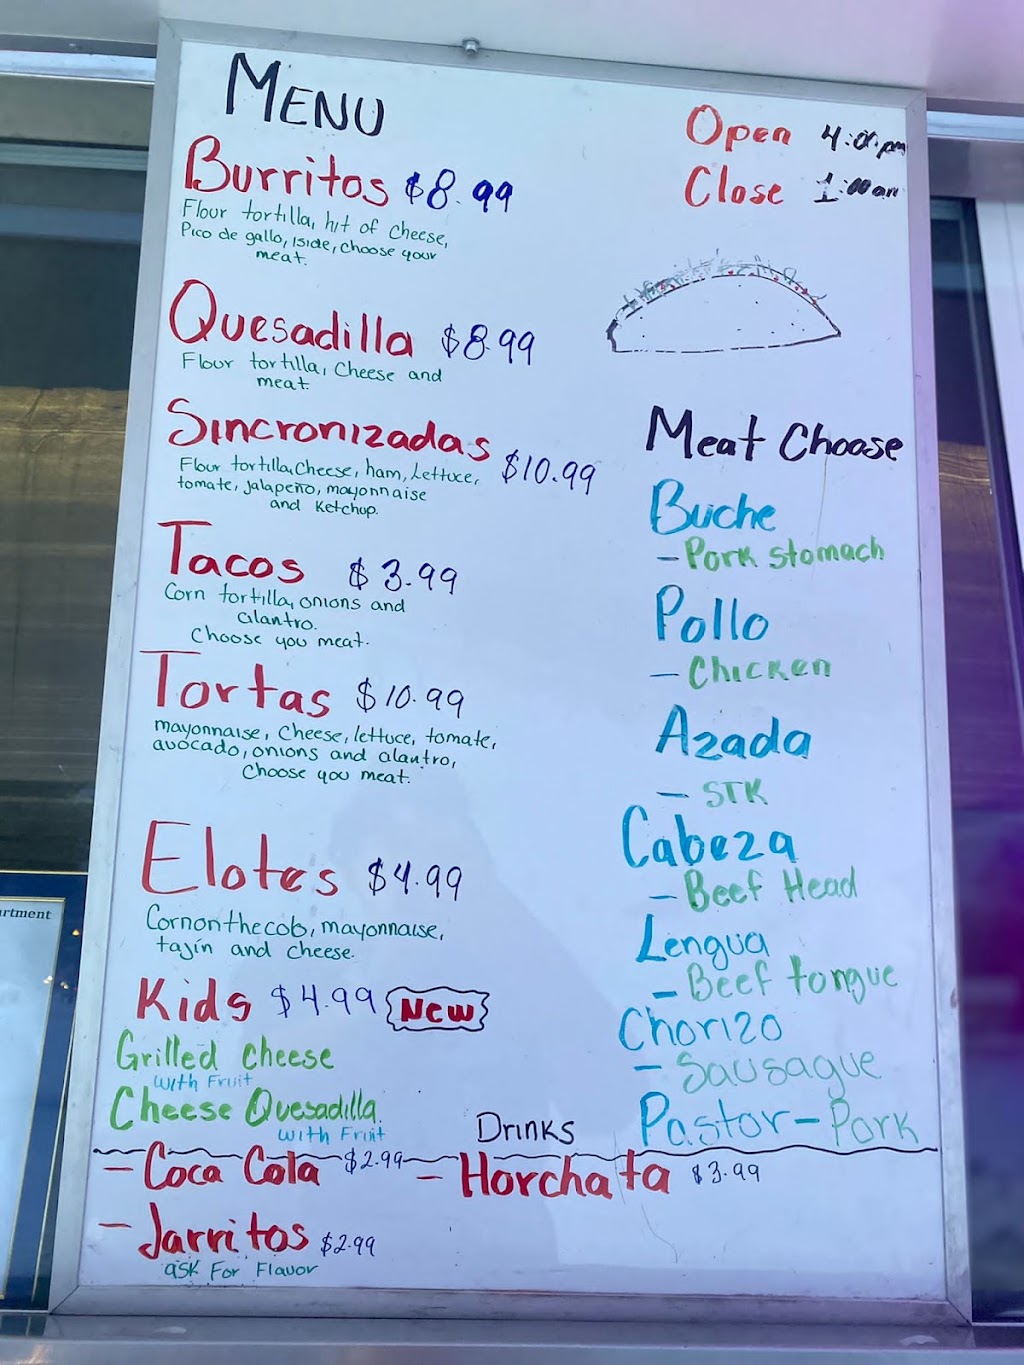 MENU
Open 4:00pm
Close 1:00am
Burritos $8.99
Flour tortilla, hit of cheese,
Pico de gallo, iside, choose your
meat.
Quesadilla $8.99
Flour tortilla, Cheese and
meat.
Sincronizadas $10.99
Flour tortilla, Cheese, ham, Lettuce,
tomate, jalapeño, mayonnaise
and Ketchup.
Tacos $3.99
Corn tortilla, onions and
cilantro.
Choose you meat.
Tortas $10.99
mayonnaise, Cheese, lettuce, tomate,
avocado, onions and cilantro,
Choose you meat.
Elotes $4.99
Cornonthecob, mayonnaise,
tajín and cheese.
Kids $4.99 New
Grilled cheese
with Fruit
Cheese Quesadilla
with Fruit
Meat Choose
Buche
- Pork stomach
Pollo
- Chicken
Azada
- STK
Cabeza
- Beef Head
Lengua
- Beef tongue
Chorizo
- Sausague
Pastor - Pork
Drinks
- Coca Cola $2.99
- Horchata $3.99
- Jarritos $2.99
ask For Flavor
artment